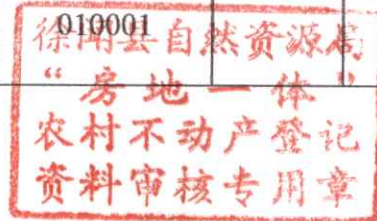 010001
徐闻县自然资源局
“房地一体”
农村不动产登记
资料审核专用章